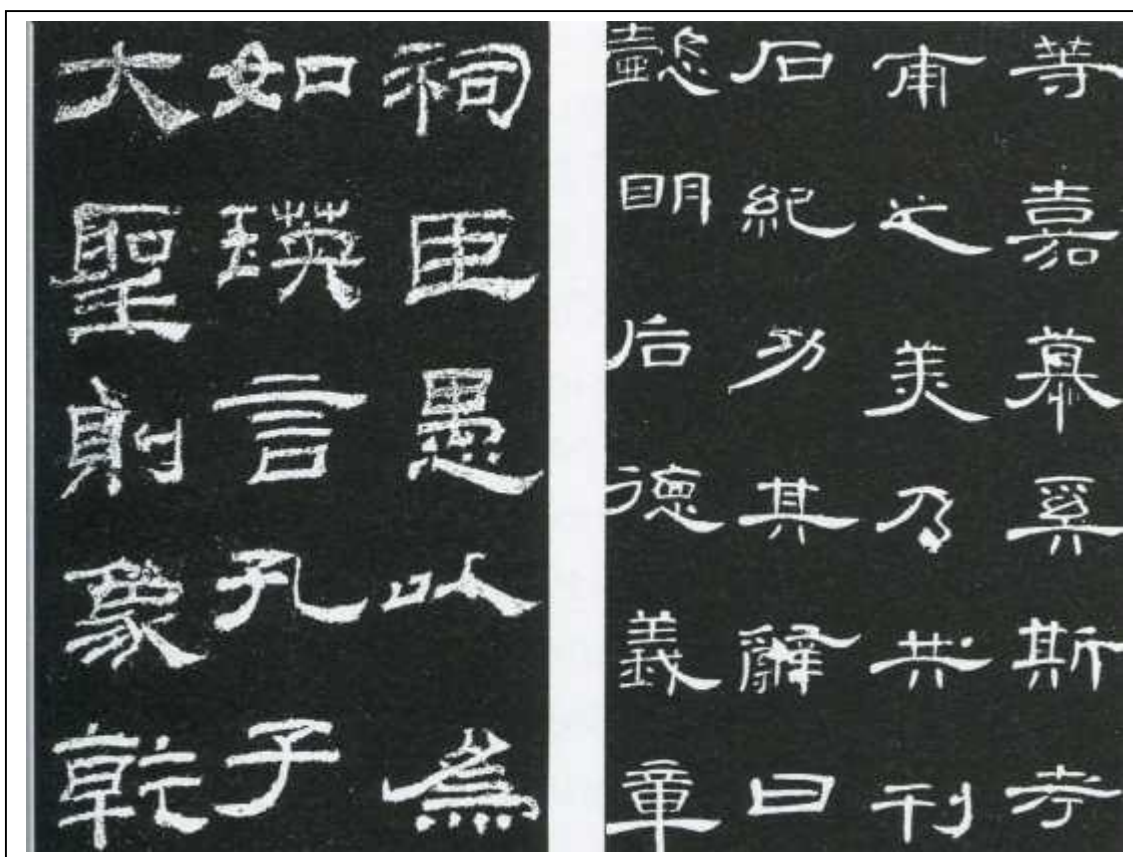 等嘉慕奚斯考
甫之美乃共刊
石紀功其辭曰
懿明后德義章
祠臣愚以為
如瑛言孔子
大聖則象乾